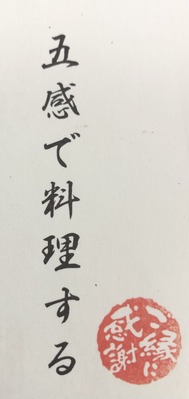 五感で料理する
ご縁に
感謝